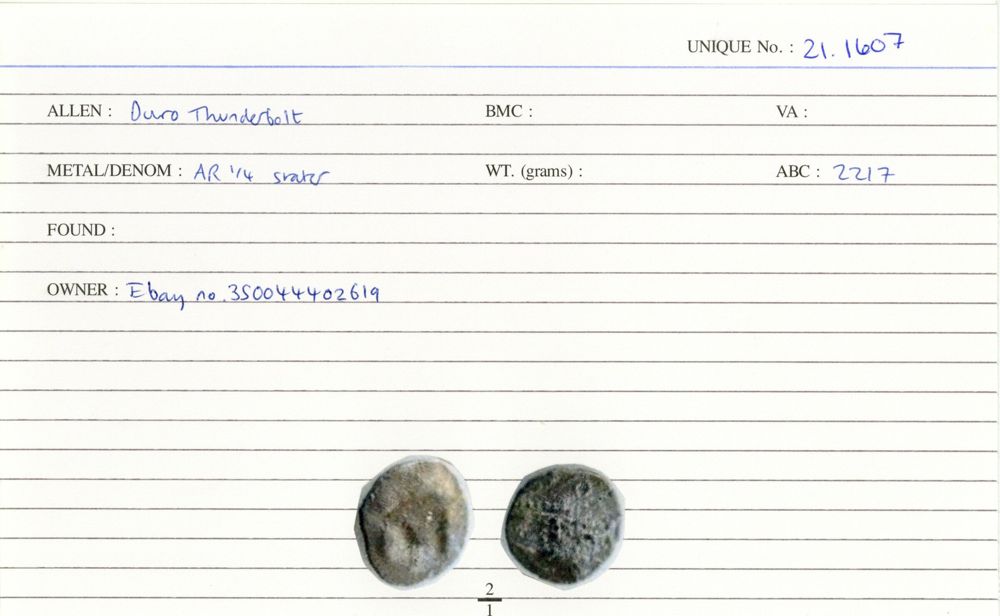 UNIQUE No. : 21.1607
ALLEN : Duro Thunderbolt BMC : VA :
METAL/DENOM : AR 1/4 stater WT. (grams) : ABC : 2217
FOUND :
OWNER : Ebay no. 350044402619
2
1